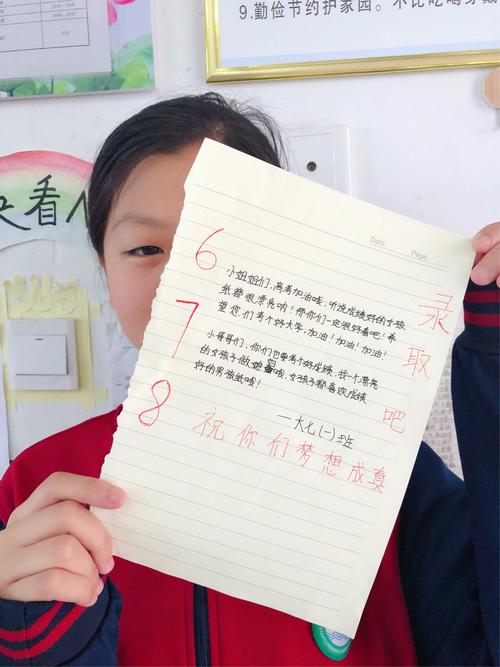 9.勤俭节约护家园。不比吃喝穿戴
央看
Date. Page.
6
7
8
小姐姐们,高考加油哦,听说成绩好的女孩
纸都很漂亮哟!那你们一定很好看吧!希
望您们考个好大学,加油!加油!加油!
小哥哥们,你们也要考个好成绩,找一个漂亮
的女孩子做媳哦,女孩子都喜欢成绩
好的男孩纸哦!
一大七(一)班
录
取
吧
祝你们梦想成真